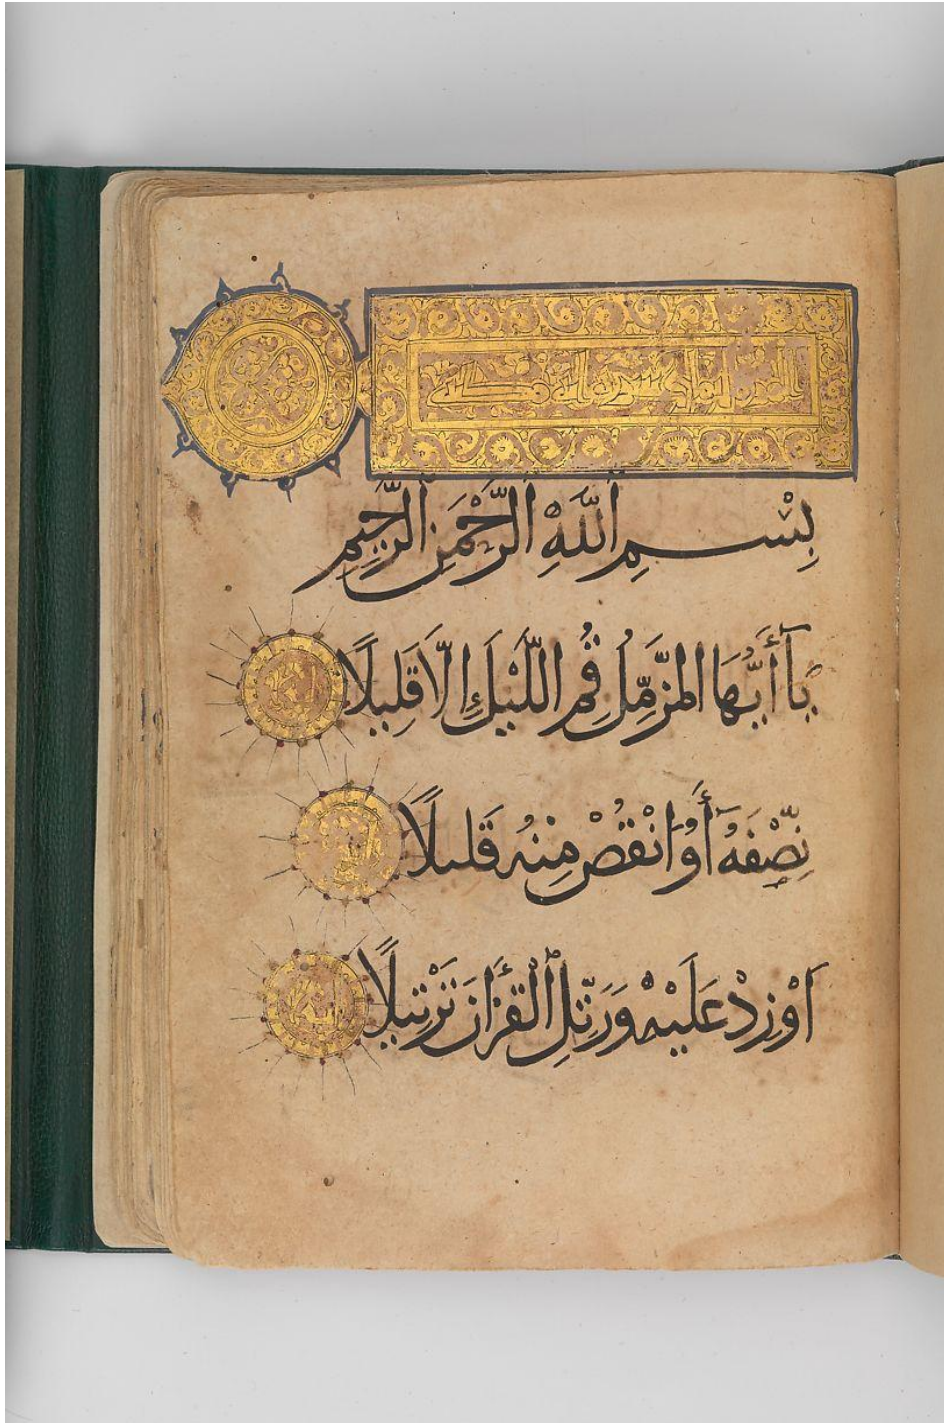 بِسْمِ اللَّهِ الرَّحْمَنِ الرَّحِيمِ
يَآ أَيُّهَا المُزَّمِّلُ قُمِ اللَّيْلَ إِلَّا قَلِيلًا
نِّصْفَهُ أَوْ انْقُصْ مِنْهُ قَلِيلًا
اَوْ زِدْ عَلَيْهِ وَرَتِّلِ الْقُرْآنَ تَرْتِيلًا